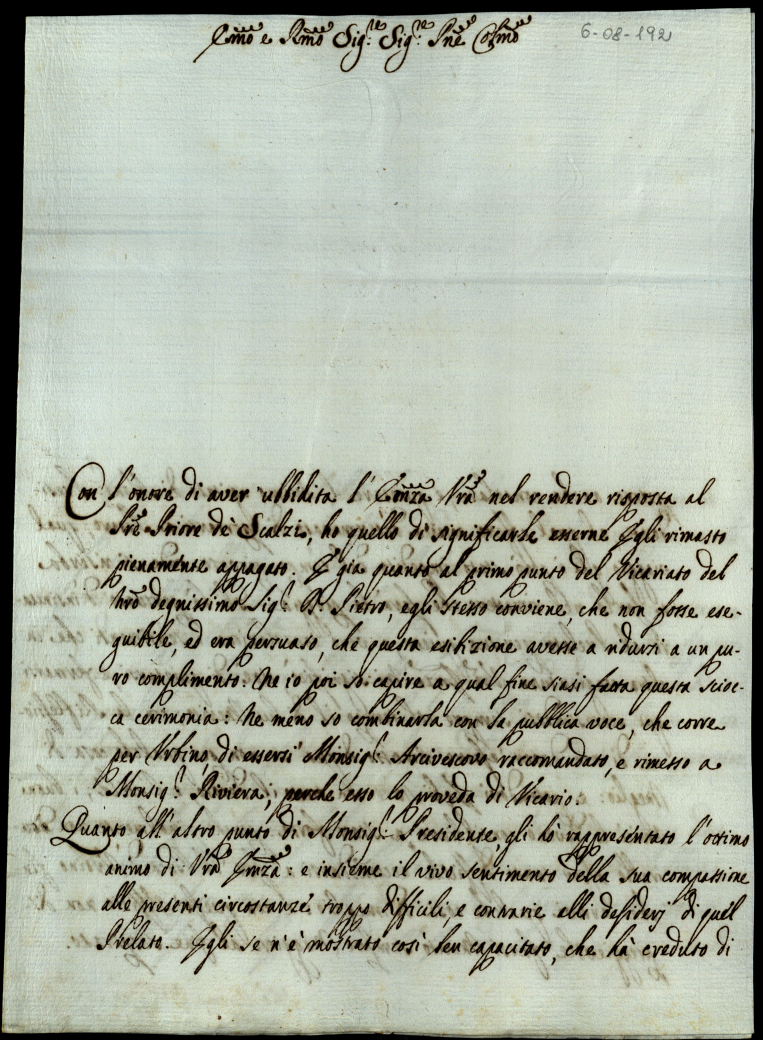 Emo e Rmo Sig.re Sig.re Pne Colmo
6-08-192
Con l'onore di aver ubbidita l'Emza Vra nel rendere risposta al
Pre Priore de Scalzi, ho quello di significarle esserne Egli rimasto
pienamente appagato. E già quanto al primo punto del Vicariato del
nro degnissimo Sig.r D. Pietro, egli stesso conviene, che non fosse ese-
guibile, ed era persuaso, che questa esibizione avesse a ridursi a un pu-
ro complimento. Ne io poi so capire a qual fine siasi fatta questa scioc-
ca cerimonia: Ne meno so combinarla con la pubblica voce, che corre
per Urbino, di essersi Monsig.r Arcivescovo raccomandato, e rimesso a
Monsig.r Riviera, perche esso lo proveda di Vicario.
Quanto all'altro punto di Monsig.r Presidente, gli hò rappresentato l'ottimo
animo di Vra Emza: e insieme il vivo sentimento della sua compassione
alle presenti circostanze troppo difficili, e contrarie alli desiderj di quel
Prelato. Egli se n'è mostrato così ben capacitato, che hà creduto di